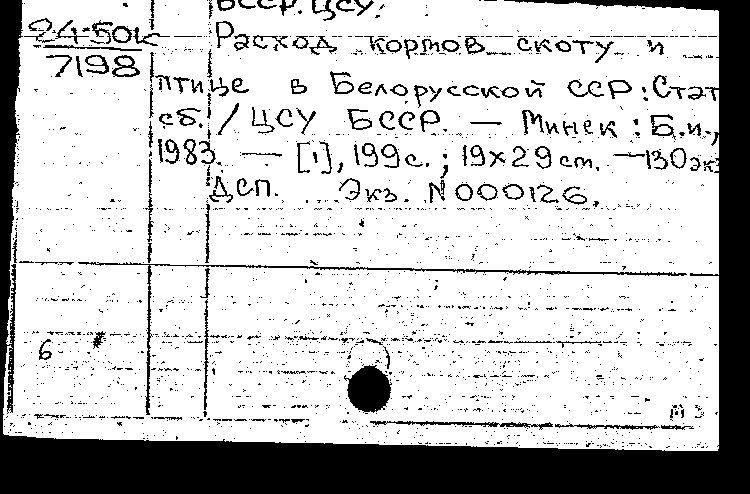 БССР. ЦСУ.
24-50к
7198
Расход кормов скоту и
птице в Белорусской ССР: Стат
сб. / ЦСУ БССР. — Минск : Б.и.,
1983. — [1], 199 с. ; 19×29 см. — 130 экз
ДСП. Экз. N 000126.
6